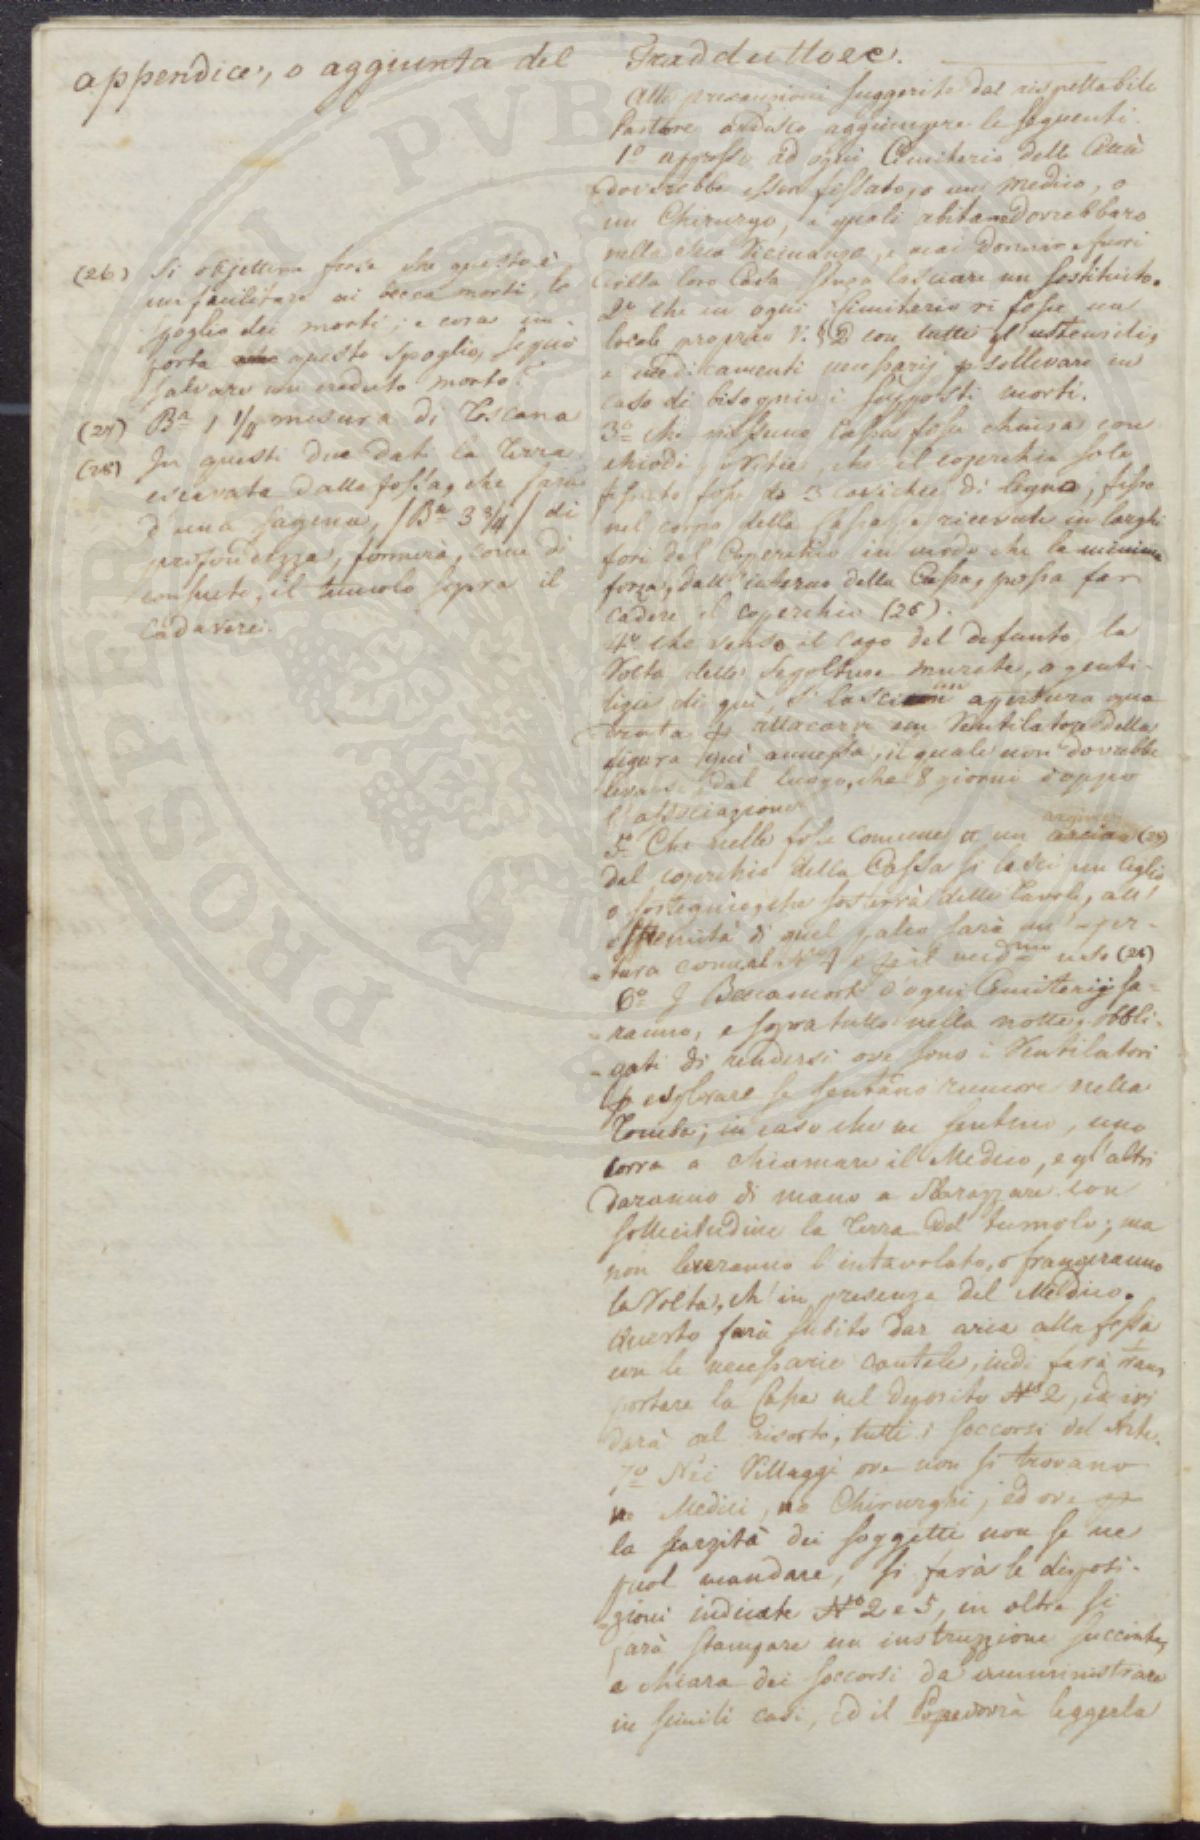 appendice, o aggiunta del Tradduttore.
Alle precauzioni suggerite dal rispettabile
Pastore ardisco aggiungere le seguenti.
1º appresso ad ogni Cimiterio della Città
dovrebbe esser fissato, o un Medico, o
un Chirurgo, i quali abitar dovrebbero
nella sua Vicinanza, e mai dormire fuori
della loro Casa senza lasciare un sostituto.
2º che in ogni Cimiterio vi fosse un
locale proprio V: § 2 con tutti gl'ustensili,
e medicamenti necessarij p sollevare in
caso di bisogno i supposti morti.
3º che nissuna Cassa fosse chiusa con
chiodi, o Vitie che il coperchio solo
tenuto fosse da 3 cavichie di legno, fisse
nel corpo della Cassa, e ricevute in larghi
fori del Coperchio in modo che la minima
forza, dall'interno della Cassa, possa far
cadere il coperchio (26).
4º che verso il capo del defunto la
Volta delle Sepolture murate, o genti-
lizie di quì, si lasci un apertura qua
-drata p attaccarvi un Ventilatore della
figura quì annessa, il quale non dovrebbe
levarsi dal luogo, che 8 giorni doppo
l'associazione
5º Che nelle fosse comune a un arcine (27)
dal coperchio della Cassa si lasci un Ciglio
o sostegnio, che sosterrà delle Tavole, all'
estremità di quel palco sarà un'aper-
-tura come al Nº 4 e p il medmo uso (28)
6º I Beccamorti d'ogni Cimiterij sa-
-ranno, e sopra tutto nella notte, obbli-
-gati di rendersi ove sono i Ventilatori
p esplorare se sentano rumore nella
Tomba; in caso che ne sentino, uno
corra a chiamare il Medico, e gl'altri
daranno di mano a Sbarazzare con
sollecitudine la Terra del tumolo; ma
non leveranno l'intavolato, o frangeranno
la Volta, ch'in presenza del Medico.
Questo farà subito dar aria alla fossa
con le necessarie cautele, indi farà tras
portare la Cassa nel deposito Nº 2, ed ivi
darà al risorto, tutti i soccorsi del Arte.
7º Nei Villaggi ove non si trovano
ne Medici, ne Chirurghi, ed ove p
la scarzità dei soggetti non se ne
puol mandare, si farà le disposi-
-zioni indicate Nº 2 e 5, in oltre si
farà stampare un instruzzione succinta,
e chiara dei soccorsi da amministrare
in simili casi, ed il Pope dovrà leggerla
(26) Si objettera forse che questo è
un facilitare ai becca morti, lo
spoglio dei morti; e cosa im-
porta questo spoglio, se può
salvare un creduto morto?
(27) Ba 1 1/4 mesura di Toscana
(28) In questi due dati la Terra
escavata dalla fossa, che sara
d'una sagena, /Ba 3 3/4/ di
profondezza, formerà, come di
consueto, il tumolo sopra il
Cadavere.
PROSPERI PVB